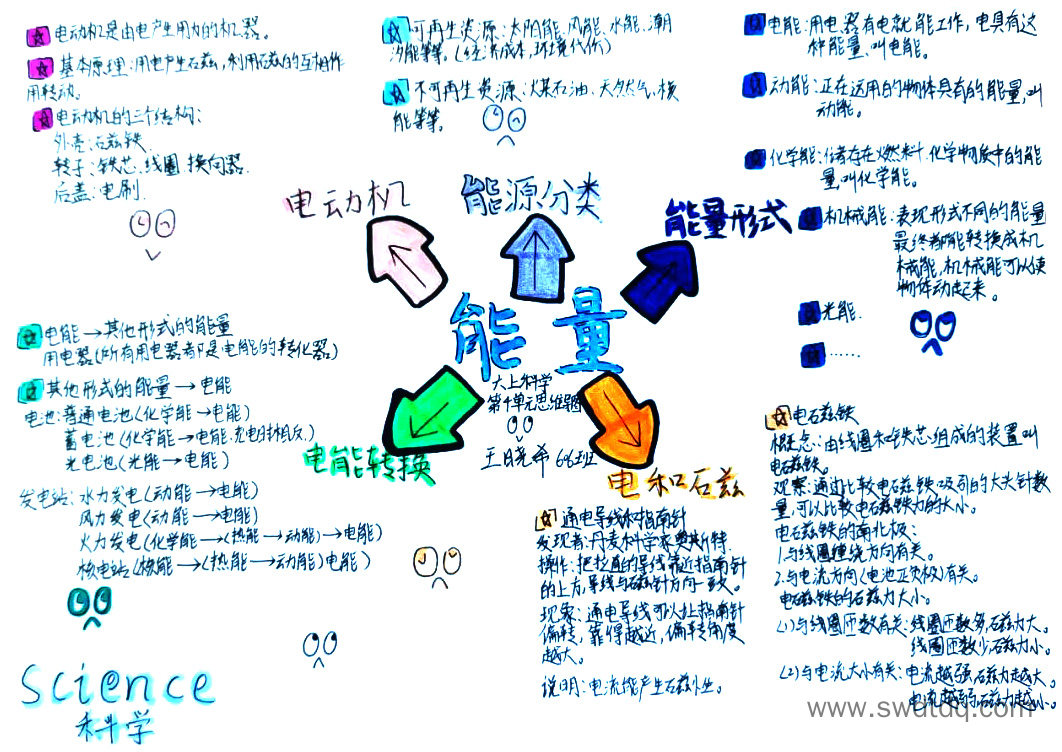 电动机是由电产生用力的机器。
基本原理:用电产生石兹,利用石兹的互相作
用转动。
电动机的三个结构:
外壳:石兹铁
转子:铁芯、线圈 换向器
后盖:电刷
电动机
可再生资源:太阳能,风能、水能、潮
汐能等等。(经济成本,环境代价)
不可再生资源:煤石油、天然气、核
能等等。
能源分类
电能:用电器有电就能工作,电具有这
种能量,叫电能。
动能:正在运用的物体具有的能量,叫
动能。
化学能:储存在燃料,化学物质中的能
量,叫化学能。
机械能:表现形式不同的能量
最终都能转换成机
械能,机械能可以使
物体动起来。
光能.
……
能量形式
能量
六上科学
第4单元思维题
王晓希 6.6班
电能→其他形式的能量
用电器(所有用电器都是电能的转化器)
其他形式的能量→电能
电池:普通电池(化学能→电能)
蓄电池(化学能→电能.充电时相反)
光电池(光能→电能)
发电站:水力发电(动能→电能)
风力发电(动能→电能)
火力发电(化学能→(热能→动能)→电能)
核电站(核能→(热能→动能)电能)
电能转换
电和石兹
通电导线和指南针
发现者:丹麦科学家奥斯特.
操作:把拉直的导线靠近指南针
的上方,导线与磁针方向一致。
现象:通电导线可以让指南针
偏转,靠得越近,偏转角度
越大。
说明:电流能产生石兹性。
电石兹铁
概念:由线圈和铁芯组成的装置叫
电石兹铁。
观察:通过比较电石兹铁吸引的大头针数
量,可以比较电石兹铁力的大小。
电石兹铁的南北极:
1.与线圈缠绕方向有关。
2.与电流方向(电池正负极)有关。
电石兹铁的石兹力大小。
(1)与线圈匝数有关:线圈匝数多石兹力大。
线圈匝数少石兹力小。
(2)与电流大小有关:电流越强石兹力越大。
电流越弱石兹力越小。
Science
科学
www.swdtdq.com